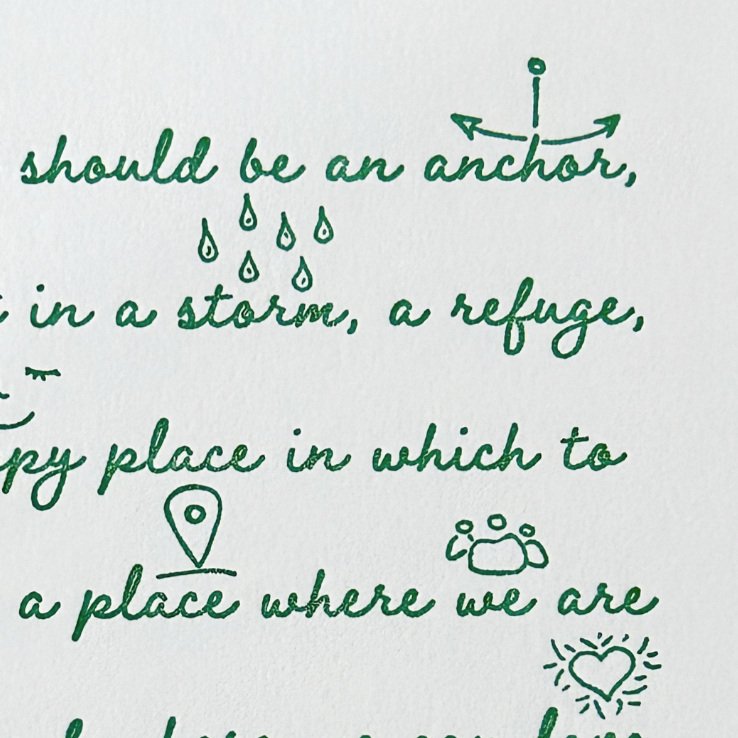 should be an anchor,
in a storm, a refuge,
place in which to
a place where we are